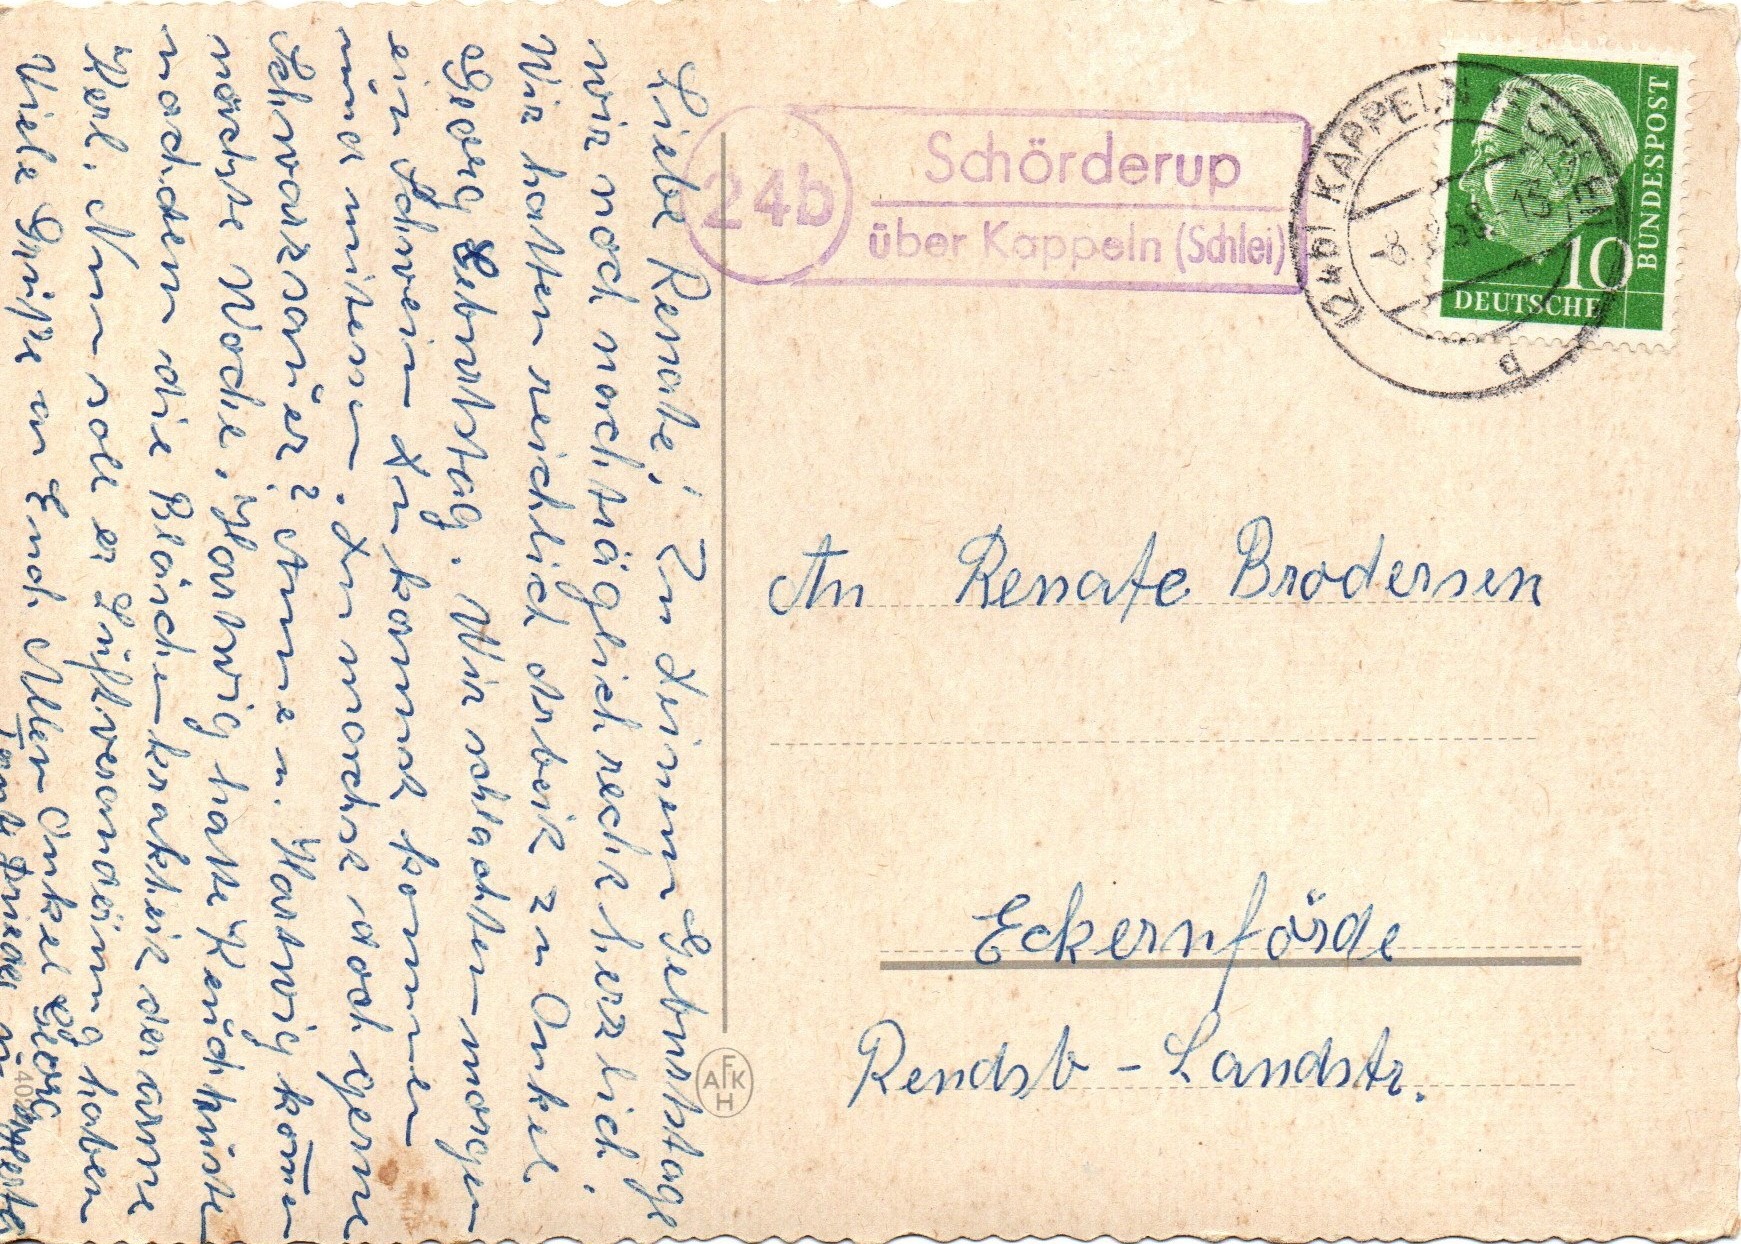 Liebe Renate! Zu Deinem Geburtstage
wir noch nachträglich recht herzlich.
Wir hatten reichlich Arbeit zu Onkel
Georg Geburtstag. Wir schlachten morgen
ein Schwein Du kannst kommen
und mitessen. Du machst doch gerne
Schwarzsauer? Anne u. Hartwig kommen
nächste Woche. Hartwig hatte Keuchhusten
nachdem die Bläschenkrankheit der arme
Kerl. Nun soll er Luftveränderung haben
Viele Grüße an Euch Allen Onkel Georg
Tante
24b
Schörderup
über Kappeln (Schlei)
(24b) KAPPELN (SCHLEI)
b
10
DEUTSCHE
BUNDESPOST
An Renate Brodersen
Eckernförde
Rendsb - Landstr.
AFKH